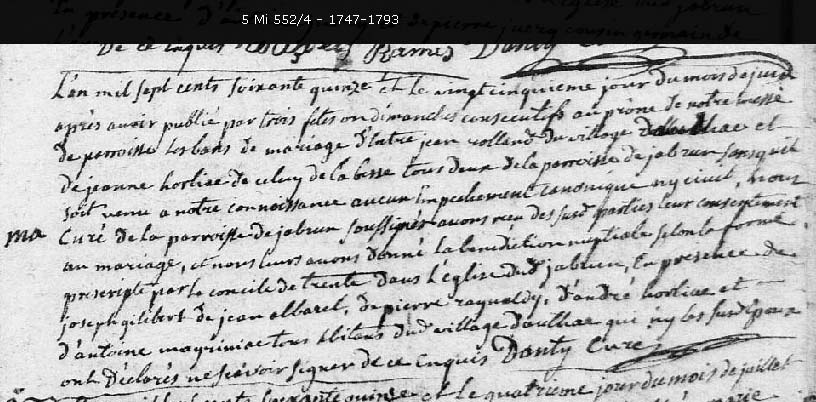 5 Mi 552/4 - 1747-1793
en presence
cousin germain de
de ce enquis Danty
L'an mil sept cents soixante quinze et le vingt cinquieme jour du mois de juin
apres avoir publié par trois fetes ou dimanches consecutifs au prone de notre messe
de parroisse les bans de mariage d'entre jean rolland du village et
de jeanne horliac de celuy de la besse tous deux de la parroisse de jabrun sans qu'il
soit venu a notre connoissance aucun empechement canonique ny civil, nous
ma Curé de la parroisse de jabrun soussigné avons recu des susd parties leur consentement
au mariage, et nous leurs avons donné la benediction nuptiale selon la forme
prescripte par le concile de trente dans l'église dud jabrun, en presence de
joseph gilibert de jean albarel, de pierre raynaldy, d'andré horliac et
d'antoine magniniac tous abitans dud village d'aulhac qui ny les susd epoux
ont déclarés ne scavoir signer de ce enquis Danty Curé
soixante quinze et le quatrieme jour du mois de juillet